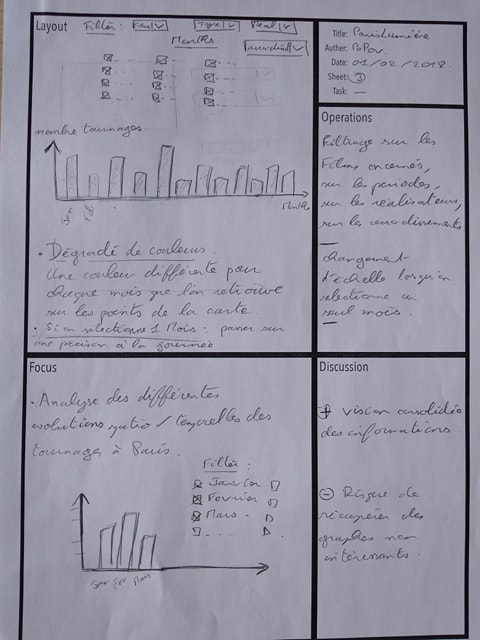 Layout
Filter :
Type
Real
Months
nombre tournages
Jan
Feb
Months
• Dégradé de couleurs :
Une couleur différente pour
chaque mois que l'on retrouve
sur les points de la carte.
• Si on sélectionne 1 Mois : passer sur
une précision à la journée
Title: ParisLumière
Auther: PoPov.
Date: 01/02/2018
Sheet: 3
Task: —
Operations
Filtrage sur les
films concernés,
sur les périodes,
sur les réalisateurs,
sur les arrondissements
—
changement
d'échelle lorsqu'on
sélectionne un
seul mois.
—
Focus
• Analyse des différentes
évolutions spatio / temporelles des
tournages à Paris.
Filter :
Janvier
Fevrier
Mars
Jan Fev Mars
Discussion
+ vision consolidée
des informations.
- Risque de
récupérer des
graphes non
intéressants.